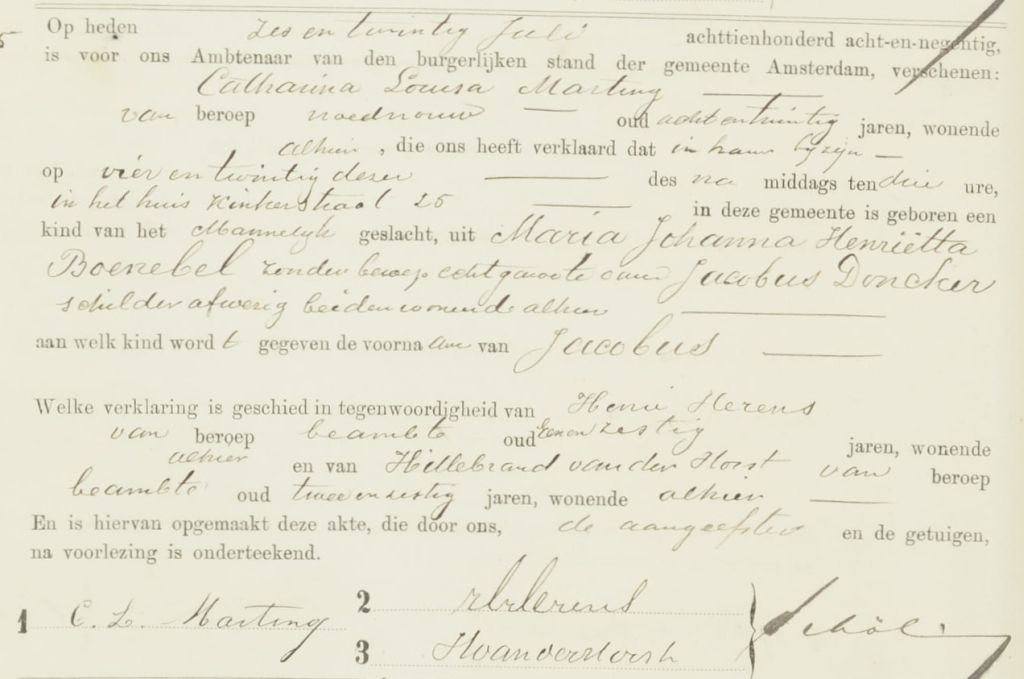 Op heden zes en twintig Juli achttienhonderd acht-en-negentig,
is voor ons Ambtenaar van den burgerlijken stand der gemeente Amsterdam, verschenen:
Catharina Louisa Marting
van beroep vroedvrouw oud acht en twintig jaren, wonende
alhier, die ons heeft verklaard dat in haar bijzijn
op vier en twintig dezer des na middags ten drie ure,
in het huis Kinkerstraat 25 in deze gemeente is geboren een
kind van het Mannelijk geslacht, uit Maria Johanna Henriëtta
Boenebel zonder beroep echtgenoote van Jacobus Doncker
schilder afwezig beiden wonende alhier
aan welk kind word t gegeven de voorna am van Jacobus
Welke verklaring is geschied in tegenwoordigheid van Henri Herens
van beroep beambte oud een en zestig jaren, wonende
alhier en van Hillebrand van der Horst van beroep
beambte oud twee en zestig jaren, wonende alhier
En is hiervan opgemaakt deze akte, die door ons, de aangeefster en de getuigen,
na voorlezing is onderteekend.
1 C. L. Marting
2 Herens
3 HvanderHorst